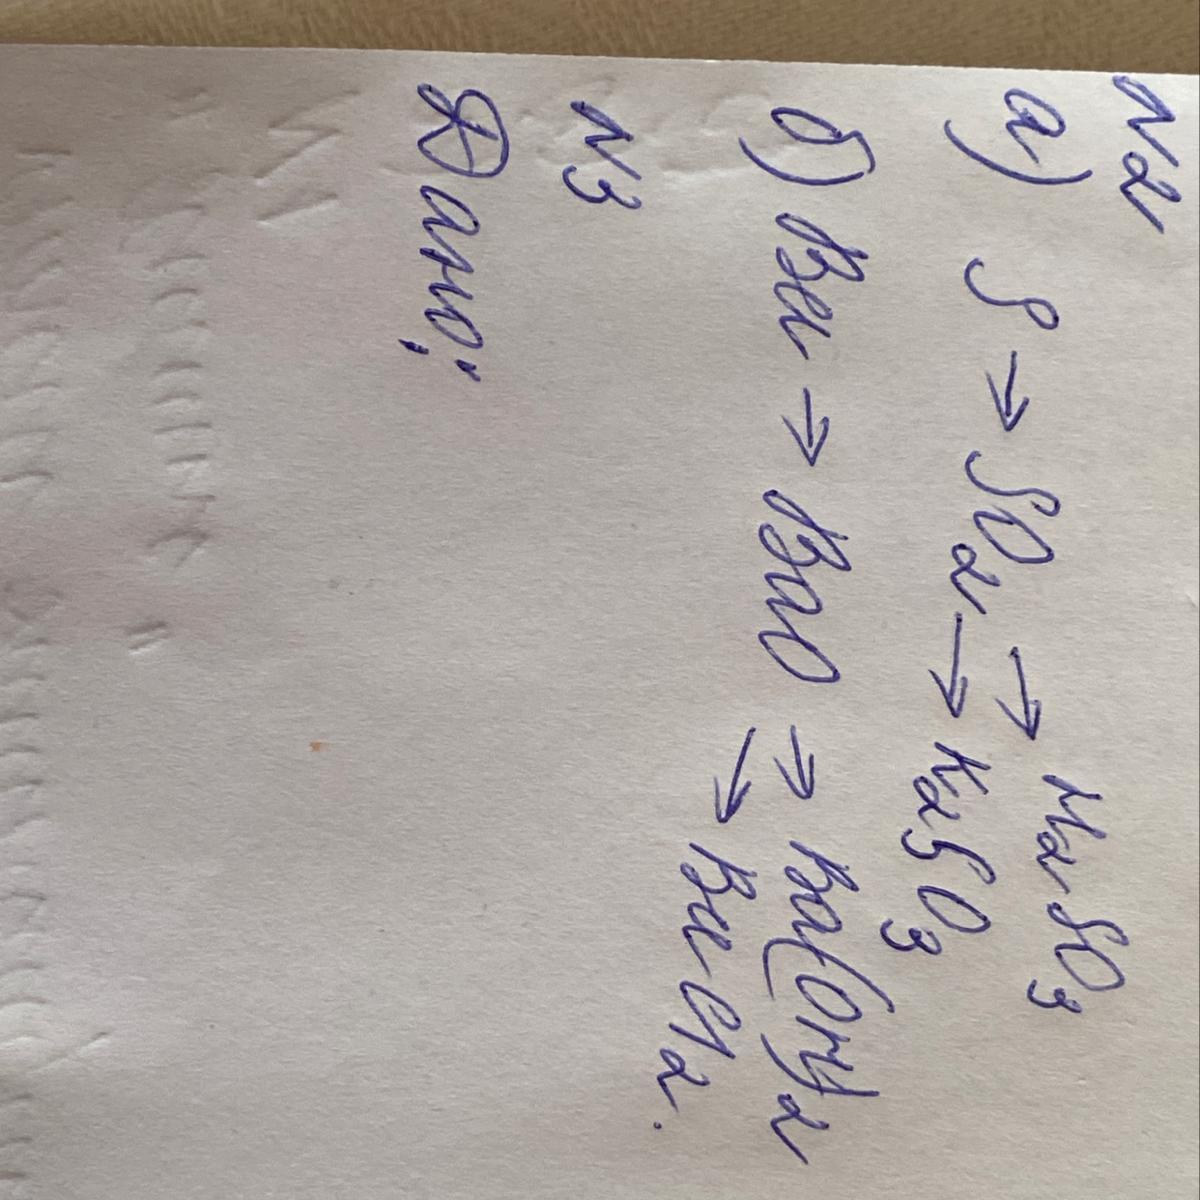 N2
а) S → SO₂ → H₂SO₃
→ K₂SO₃
б) Ba → BaO → Ba(OH)₂
→ BaCl₂.
N3
Дано: